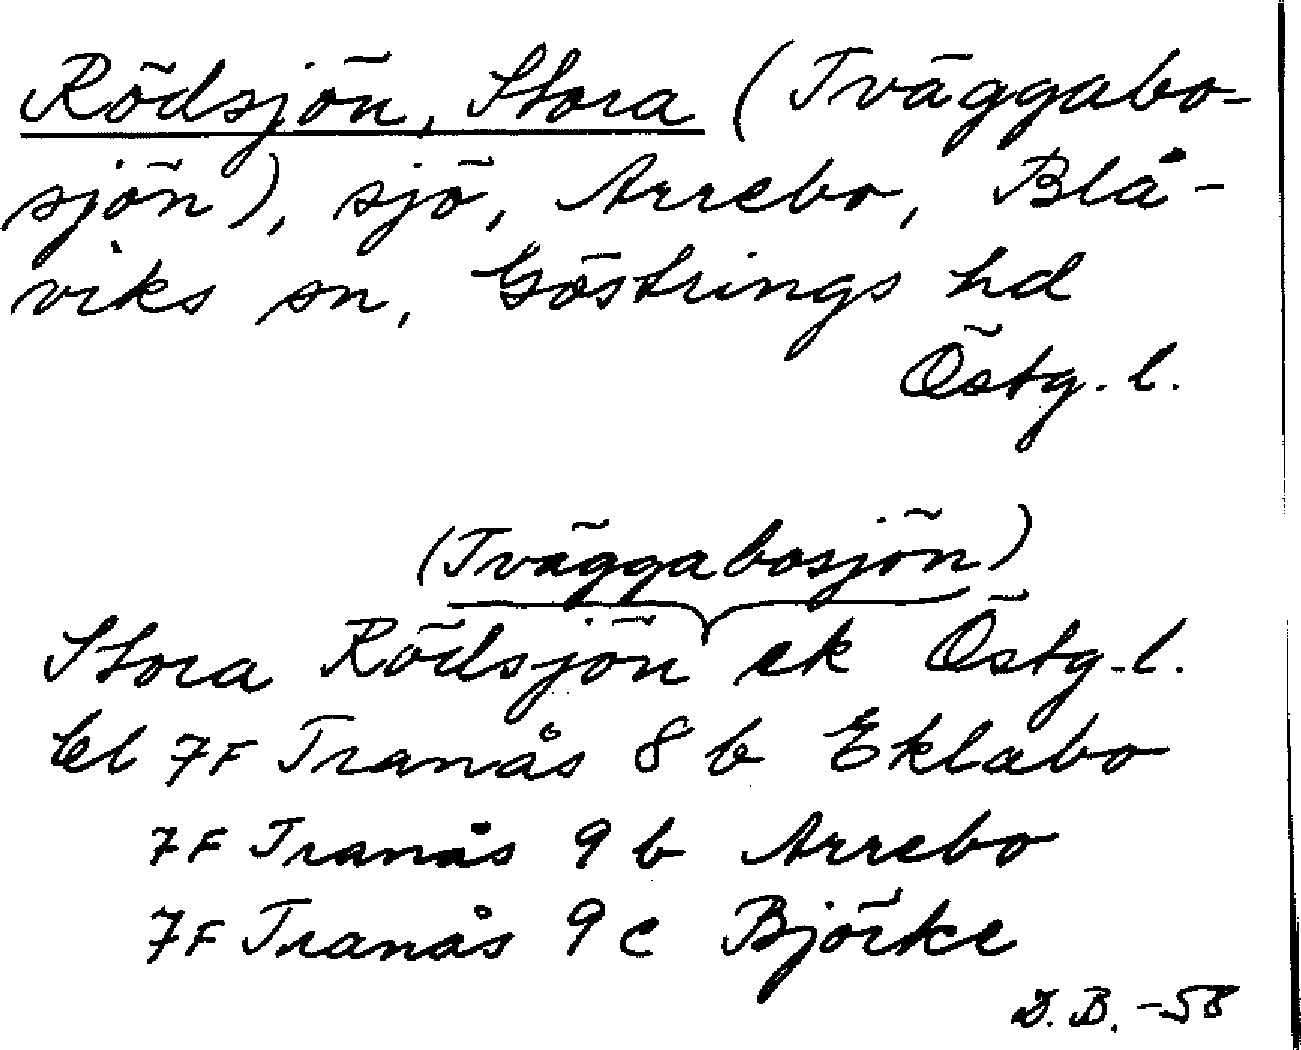 Rödsjön, Stora (Tväggabo-
sjön), sjö, Arrebo, Blå-
viks sn, Göstrings hd
Östg. l.
(Tväggabosjön)
Stora Rödsjön ek Östg. l.
bl 7F Tranås 8 b Eklabo
7F Tranås 9 b Arrebo
7F Tranås 9 c Björke
D. B. -58